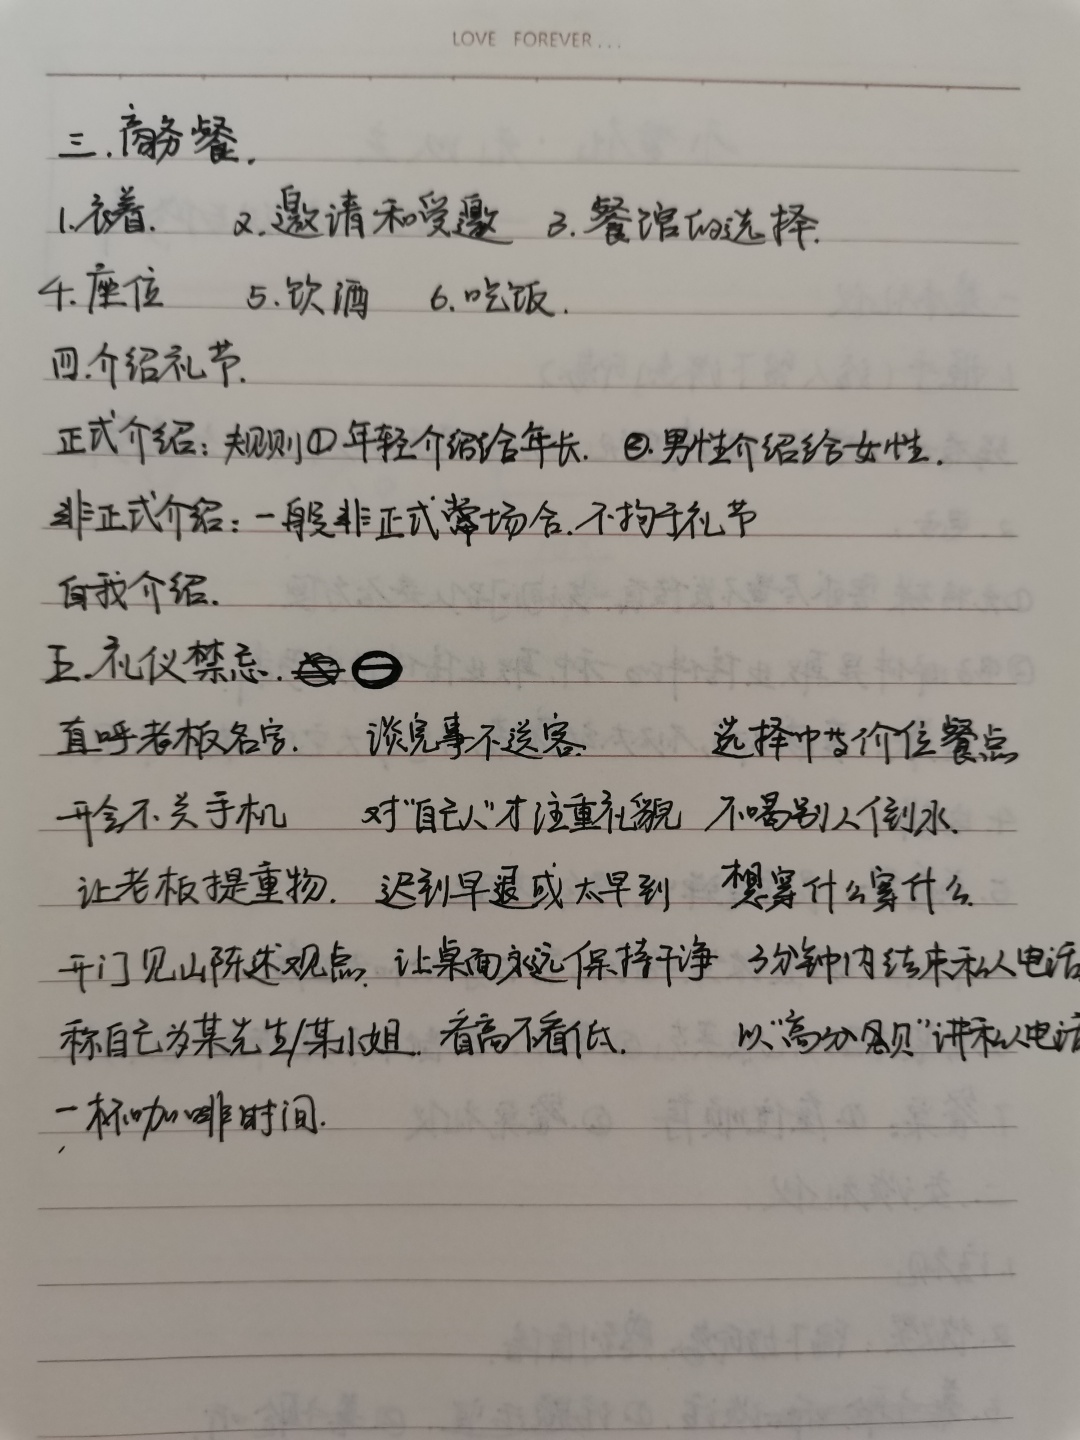 LOVE FOREVER...
三.商务餐.
1.衣着. 2.邀请和受邀 3.餐馆的选择.
4.座位 5.饮酒 6.吃饭.
四.介绍礼节.
正式介绍：规则①年轻介绍给年长. ②.男性介绍给女性.
非正式介绍：一般非正式场合.不拘于礼节
自我介绍.
五.礼仪禁忌.
直呼老板名字. 谈完事不送客. 选择中等价位餐点
开会不关手机 对"自己人"才注重礼貌 不喝别人倒水.
让老板提重物. 迟到早退或太早到 想穿什么穿什么.
开门见山陈述观点. 让桌面永远保持干净 3分钟内结束私人电话
称自己为某先生/某小姐. 看高不看低. 以"高分贝"讲私人电话
一杯咖啡时间.